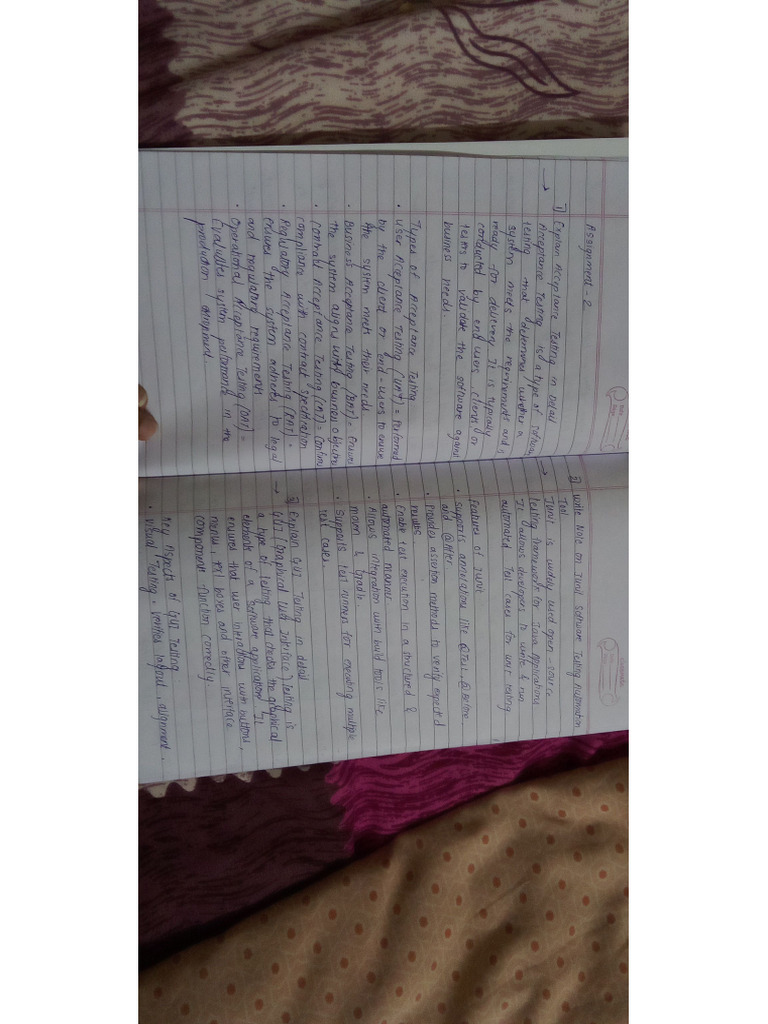 Assignment - 2
1] Explain Acceptance Testing in detail
→ Acceptance Testing is a type of software
testing that determines whether a
system meets the requirements and is
ready for delivery. It is typically
conducted by end users, clients or
teams to validate the software against
business needs.
Types of Acceptance Testing
• User Acceptance Testing (UAT) = Performed
by the client or end-users to ensure
the system meets their needs
• Business Acceptance Testing (BAT) = Ensures
the system aligns with business objective
• Contract Acceptance Testing (CAT) =
compliance with contract specification
• Regulatory Acceptance Testing (RAT) =
ensures the system adheres to legal
and regulatory requirements
• Operational Acceptance Testing (OAT) =
Evaluates system performance in the
production
2] Write Note on Junit Software Testing Automation
Tool.
→ Junit is widely used open-source
testing framework for Java applications
It allows developers to write & run
automated Test cases for unit testing
features of Junit
• supports annotations like @Test, @Before
and @After
• Provides assertion methods to verify expected
results
• Enable test execution in a structured &
automated manner
• Allows integration with build tools like
maven & Gradle
• Supports test runners for executing multiple
test cases.
3] Explain GUI Testing in detail
→ GUI (Graphical User Interface) testing is
a type of testing that checks the graphical
elements of a software application. It
ensures that user interactions with buttons,
menus, text boxes and other interface
component function correctly
Key Aspects of GUI Testing
• Visual Testing, verifies layout, alignment,